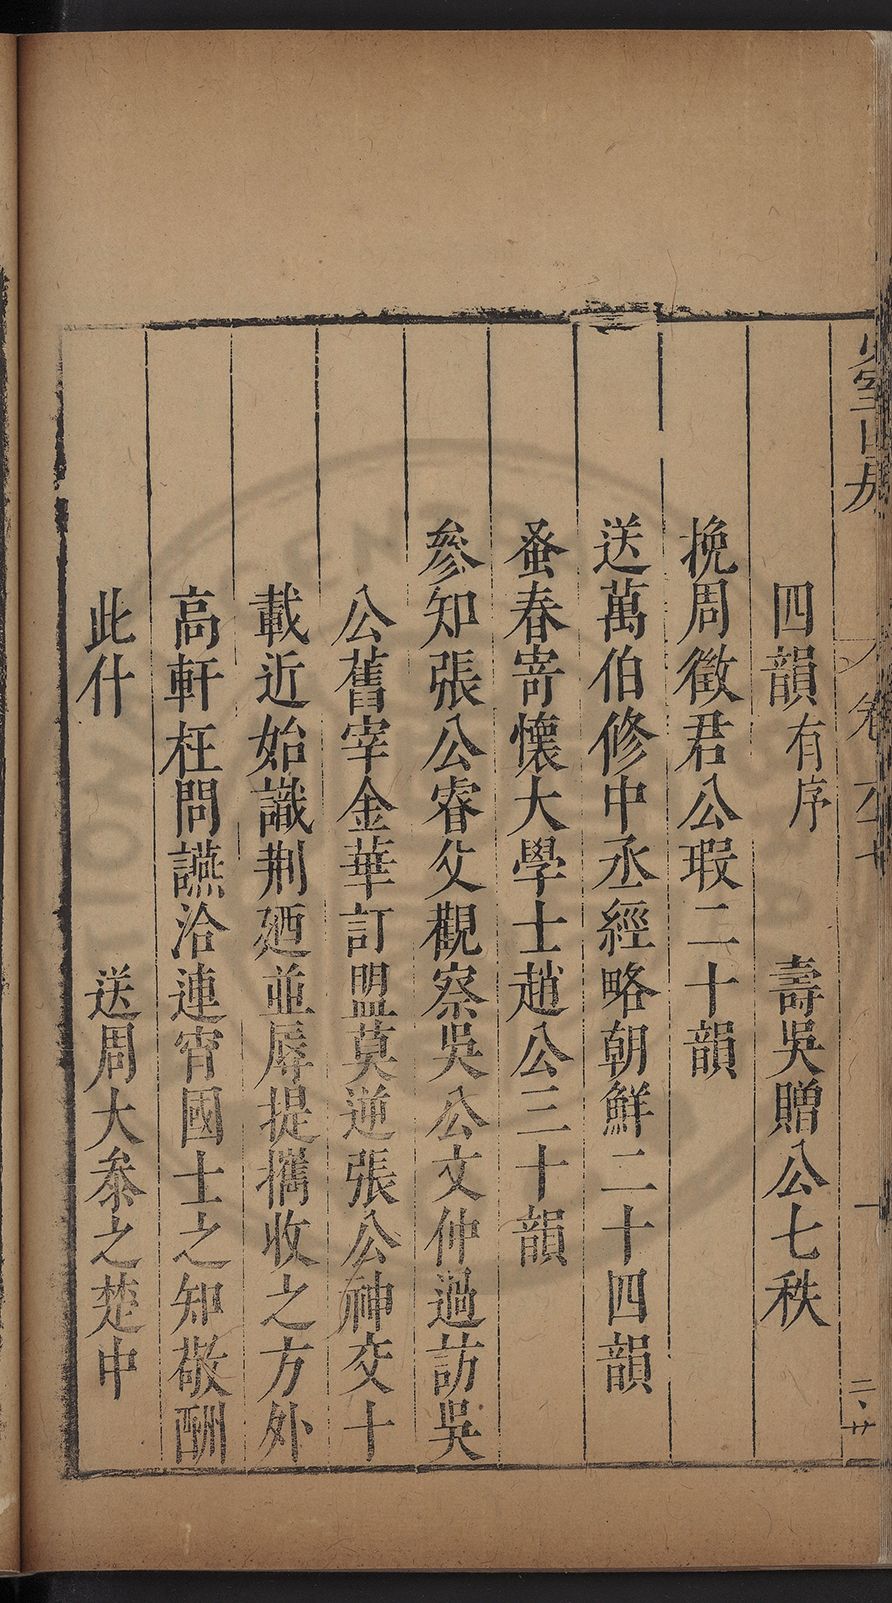 四韻有序　壽吳贈公七秩
挽周徵君公瑕二十韻
送萬伯修中丞經略朝鮮二十四韻
蚤春寄懷大學士趙公三十韻
參知張公睿父觀察吳公文仲過訪吳
公舊宰金華訂盟莫逆張公神交十
載近始識荆廼並辱提攜收之方外
高軒枉問讌洽連宵國士之知敬酬
此什　送周大參之楚中